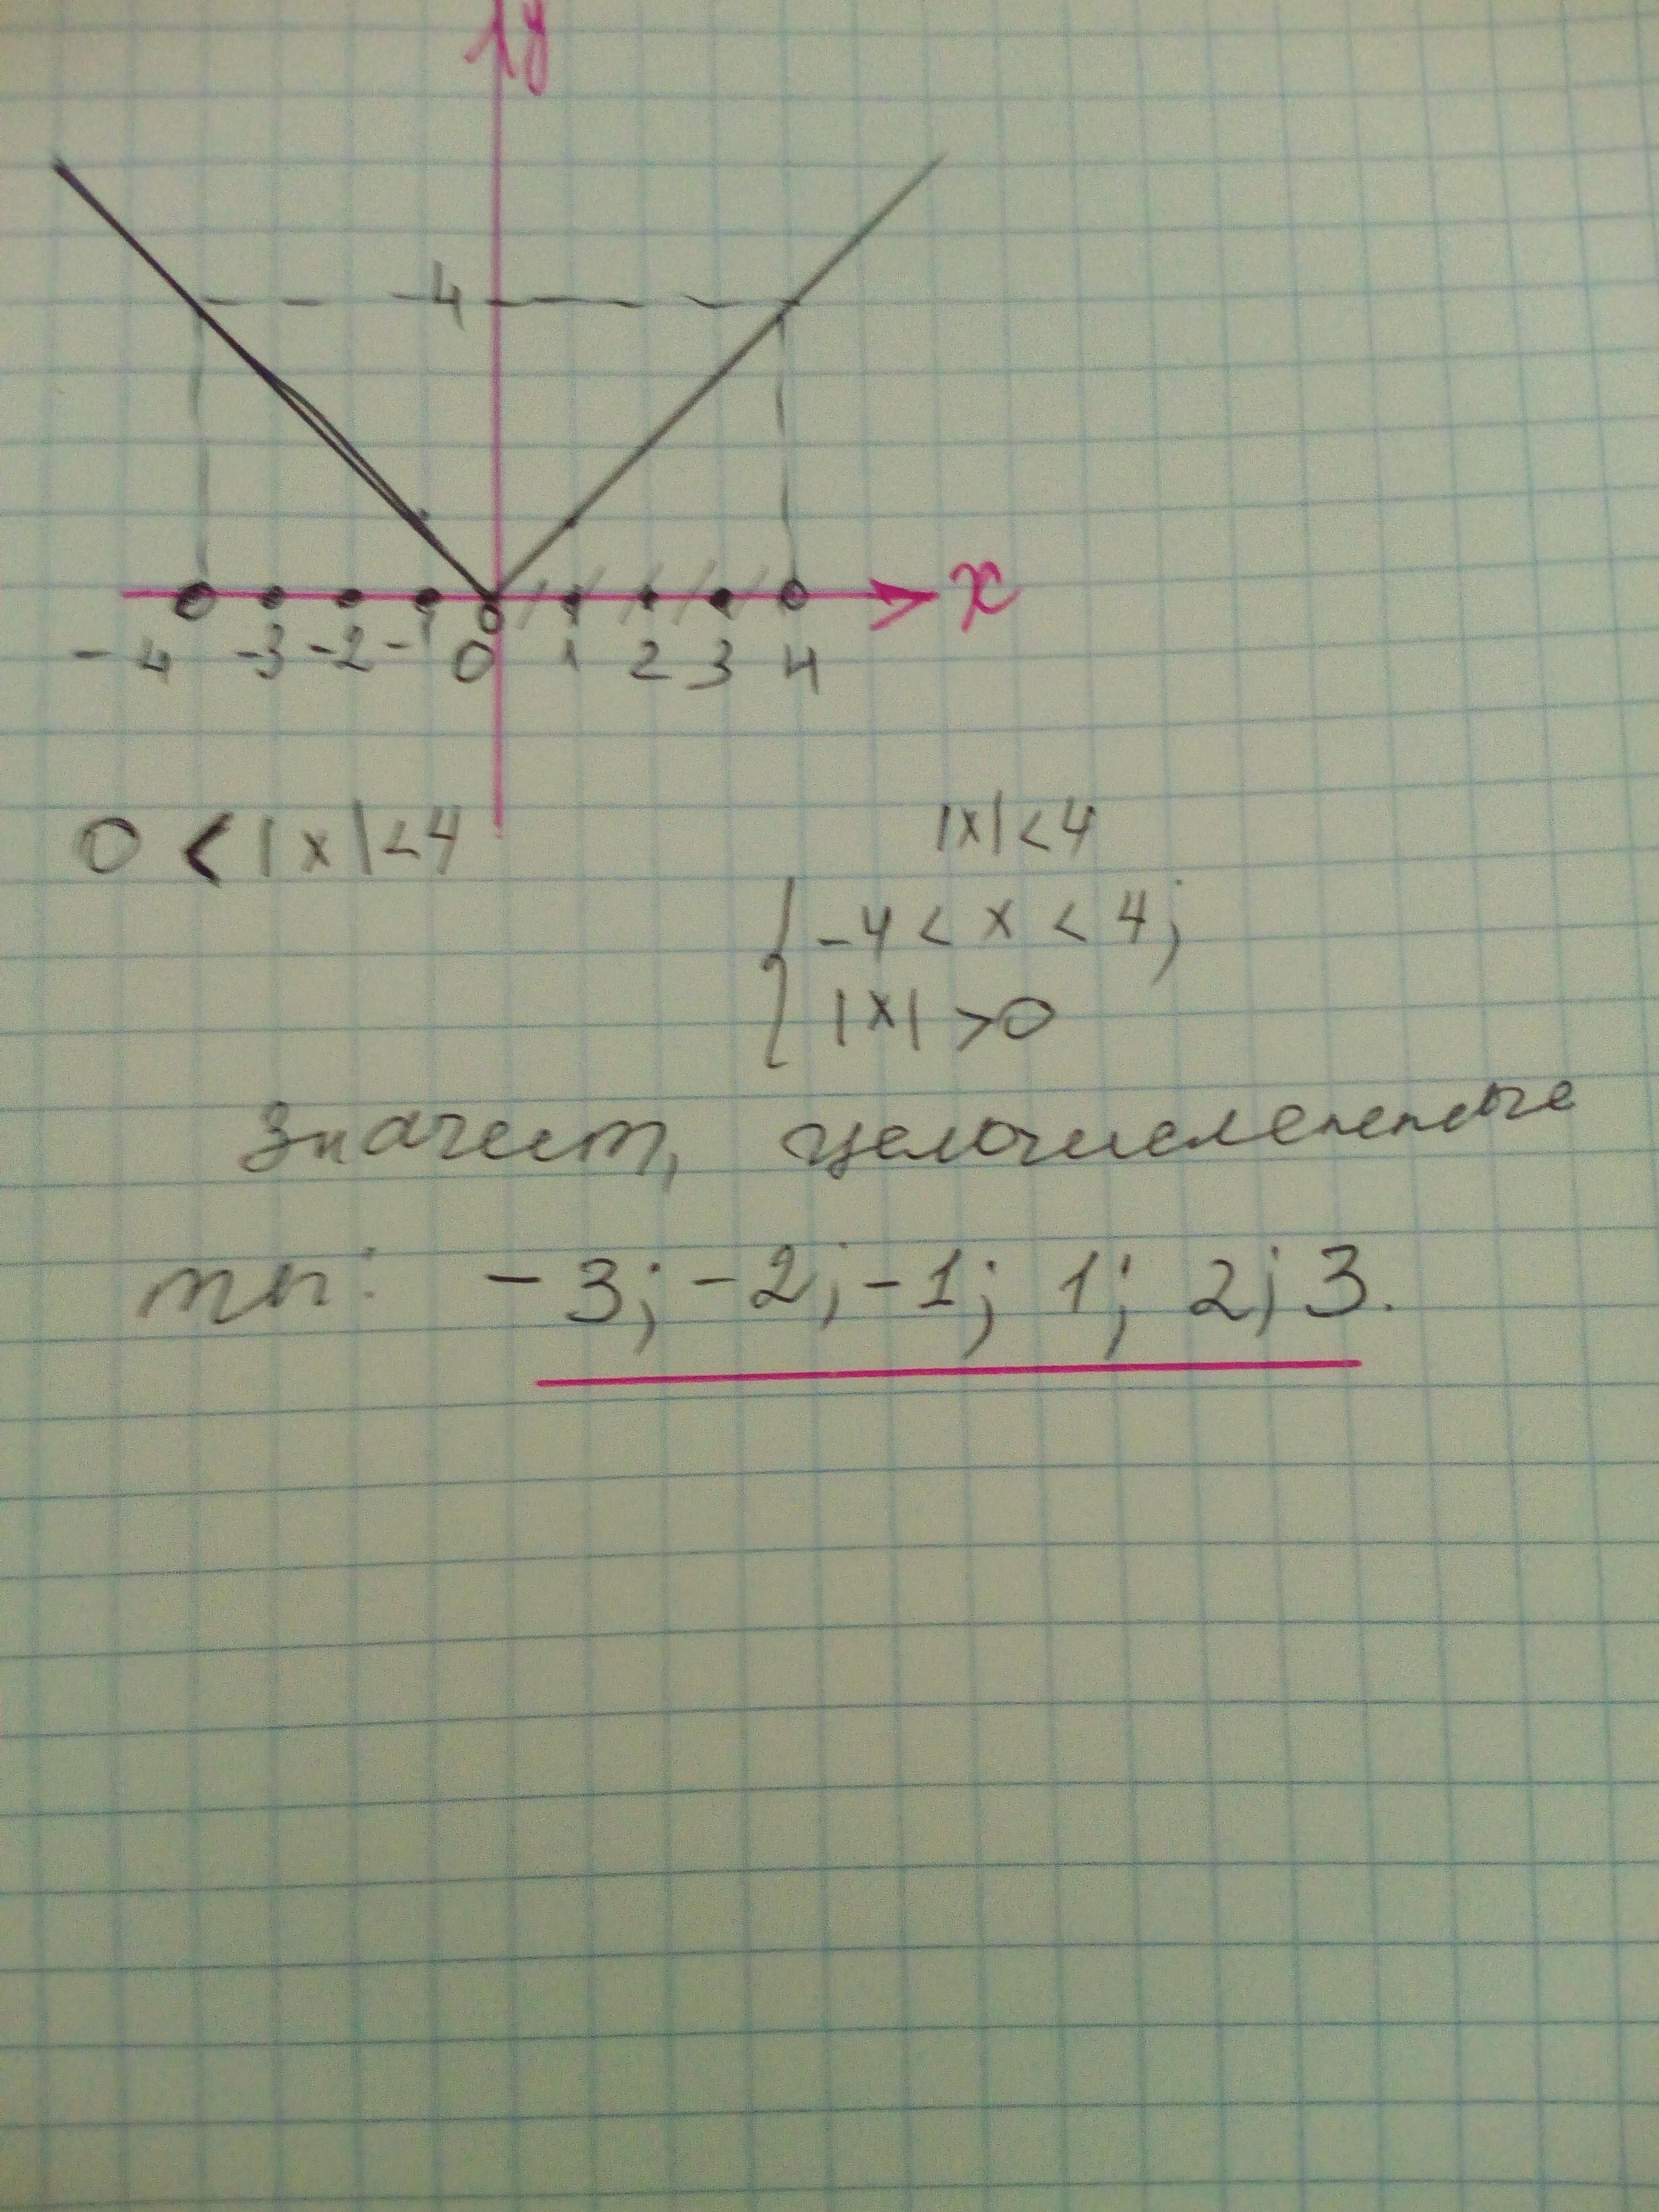 y
4
x
-4 -3 -2 -1 0 1 2 3 4
0 < |x| < 4
|x| < 4
-4 < x < 4;
|x| > 0
Значит, целочисленные
тп: -3; -2; -1; 1; 2; 3.